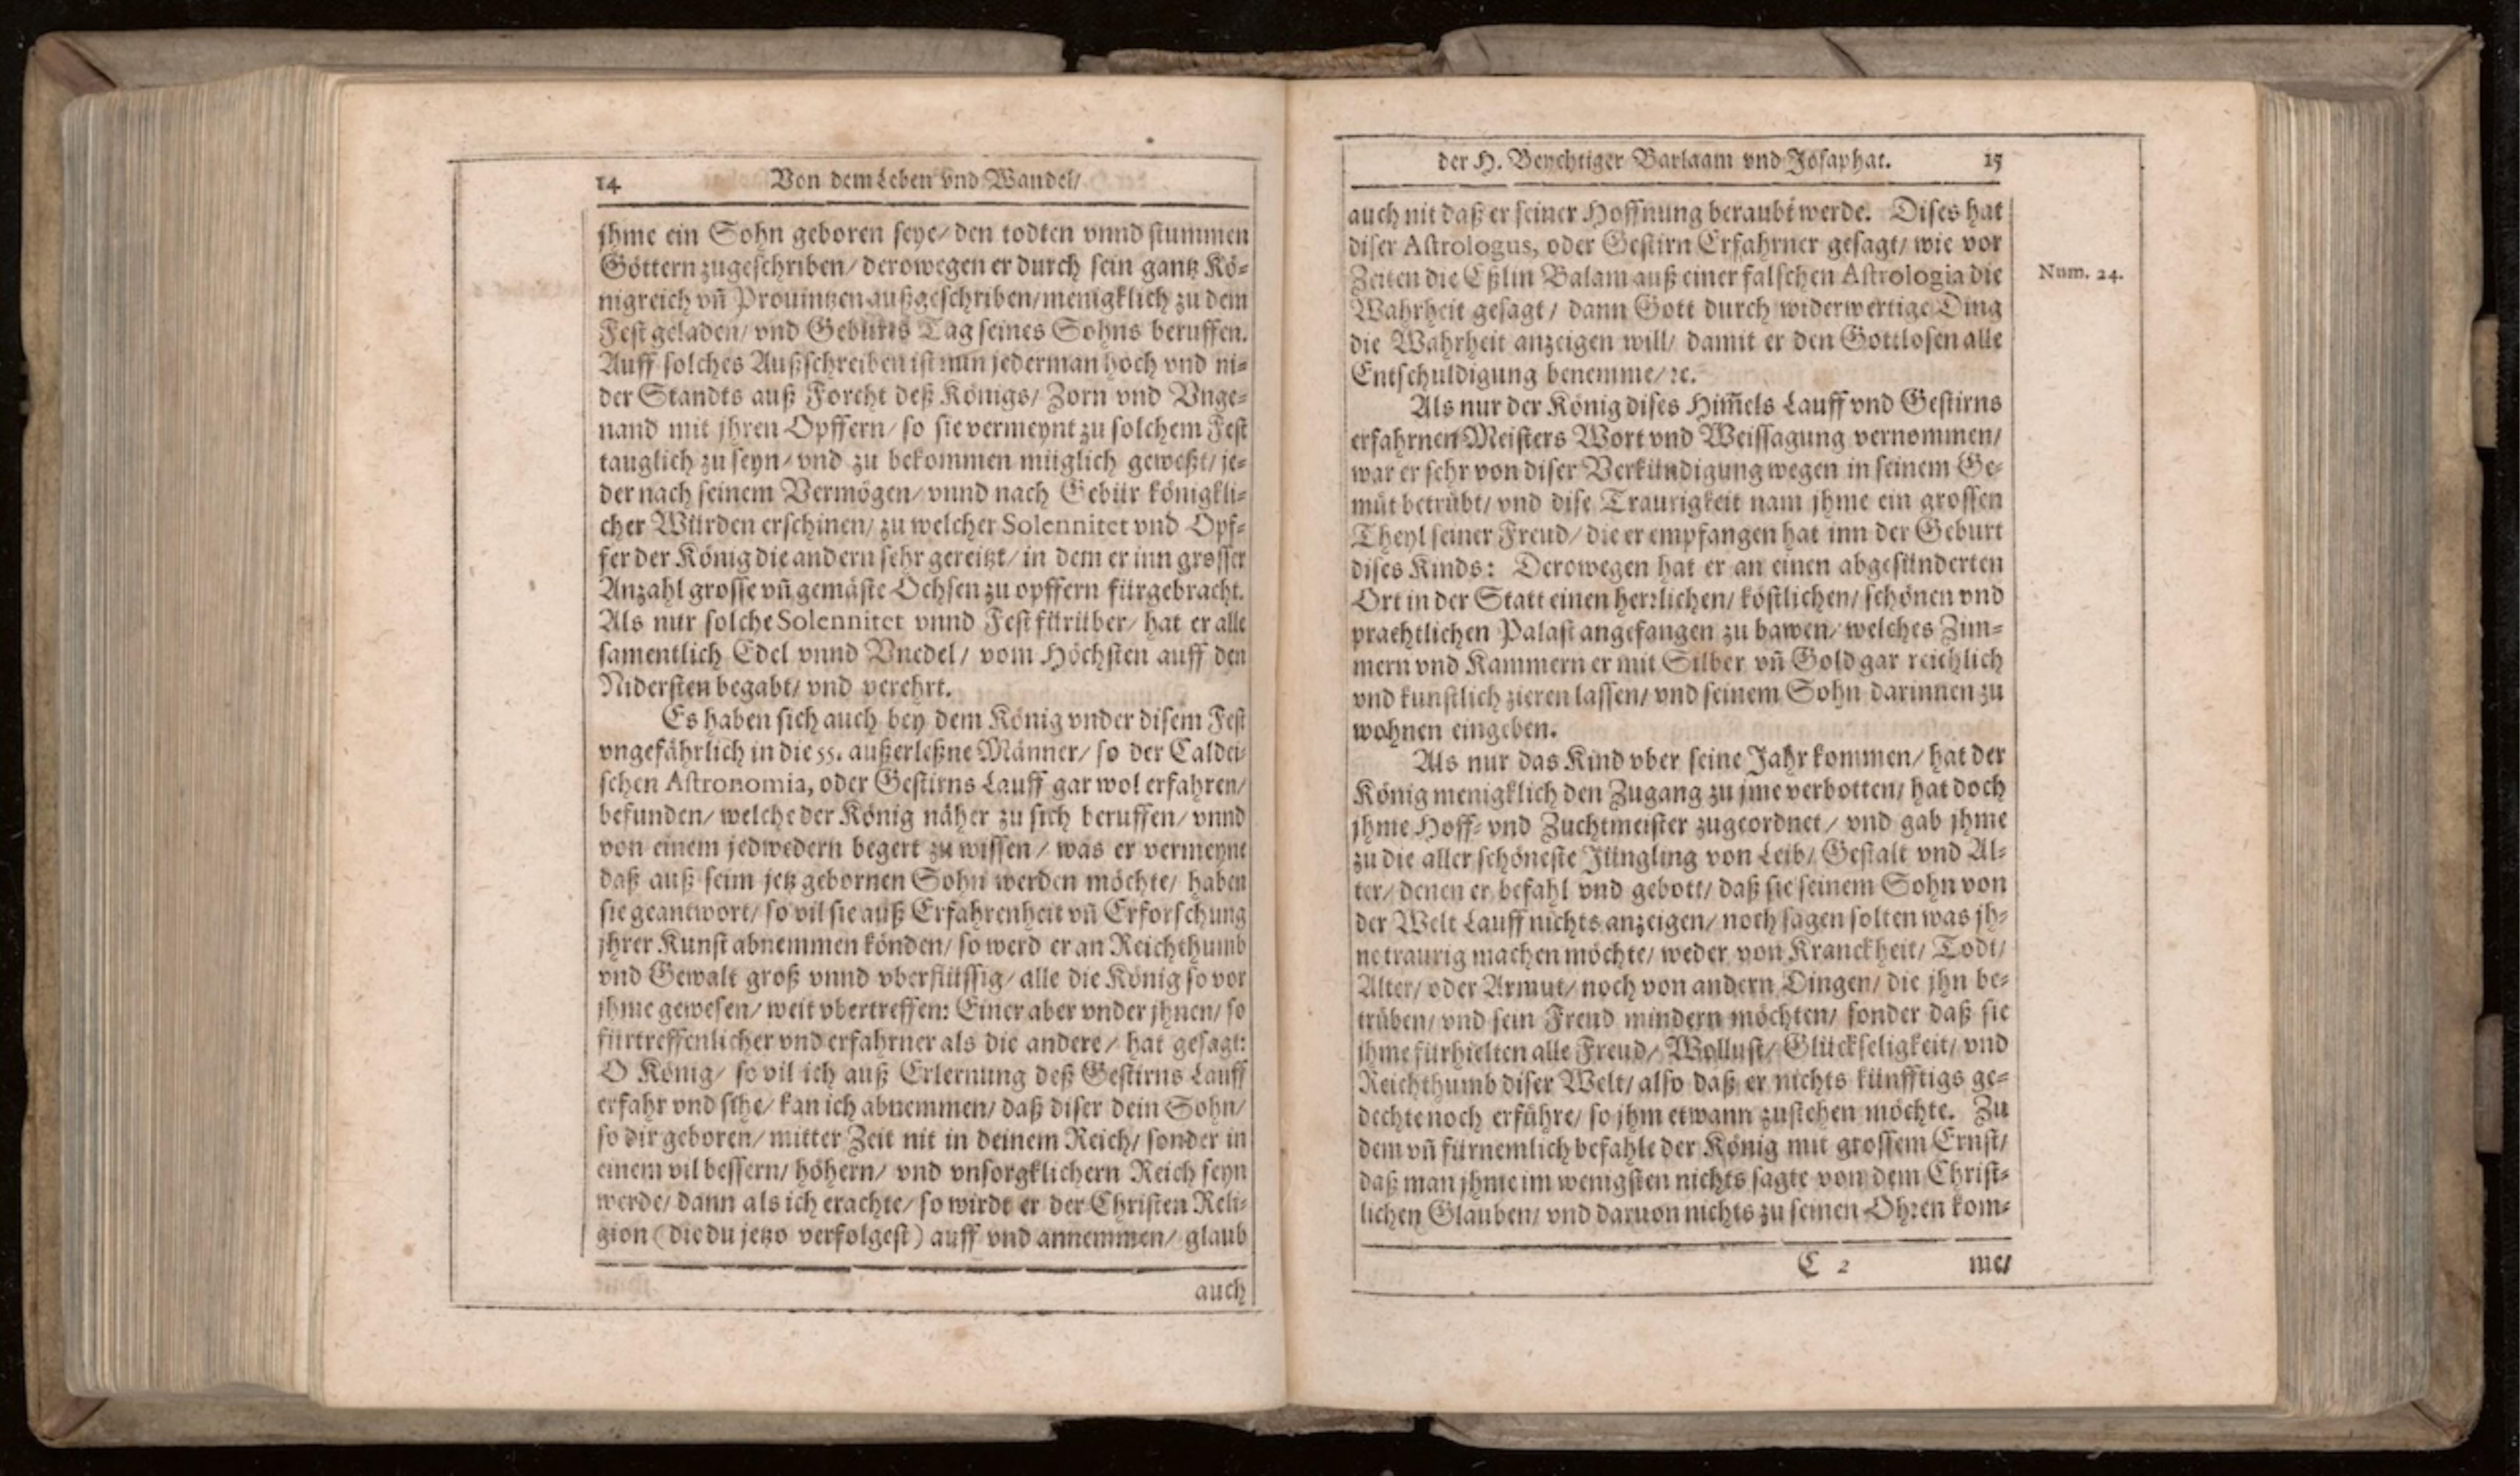 14 Von dem Leben vnd Wandel/
jhme ein Sohn geboren seye/ den todten vnnd stummen
Göttern zugeschriben/ derowegen er durch sein gantz Kö-
nigreich vñ Prouintzen außgeschriben/ menigklich zu dem
Fest geladen/ vnd Geburts Tag seines Sohns beruffen.
Auff solches Außschreiben ist nun jederman hoch vnd ni-
der Standts auß Forcht deß Königs/ Zorn vnd Vnge-
nand mit jhren Opffern/ so sie vermeynt zu solchem Fest
tauglich zu seyn/ vnd zu bekommen müglich geweßt/ je-
der nach seinem Vermögen/ vnnd nach Gebür königkli-
cher Würden erschinen/ zu welcher Solennitet vnd Opf-
fer der König die andern sehr gereitzt/ in dem er inn grosser
Anzahl grosse vñ gemäste Ochsen zu opffern fürgebracht.
Als nur solche Solennitet vnnd Fest fürüber/ hat er alle
samentlich Edel vnnd Vnedel/ vom Höchsten auff den
Nidersten begabt/ vnd verehrt.
Es haben sich auch bey dem König vnder disem Fest
vngefährlich in die 55. außerleßne Männer/ so der Caldei-
schen Astronomia, oder Gestirns Lauff gar wol erfahren/
befunden/ welche der König näher zu sich beruffen/ vnnd
von einem jedwedern begert zu wissen/ was er vermeyne
daß auß seim jetz gebornen Sohn werden möchte/ haben
sie geantwort/ so vil sie auß Erfahrenheit vñ Erforschung
jhrer Kunst abnemmen könden/ so werd er an Reichthumb
vnd Gewalt groß vnnd vberflüssig/ alle die König so vor
jhme gewesen/ weit vbertreffen: Einer aber vnder jhnen/ so
fürtreffenlicher vnd erfahrner als die andere/ hat gesagt:
O König/ so vil ich auß Erlernung deß Gestirns Lauff
erfahr vnd sihe/ kan ich abnemmen/ daß diser dein Sohn/
so dir geboren/ mitter Zeit nit in deinem Reich/ sonder in
einem vil bessern/ höhern/ vnd vnsorgklichern Reich seyn
werde/ dann als ich erachte/ so wirdt er der Christen Reli-
gion (die du jetzo verfolgest) auff vnd annemmen/ glaub
auch
der H. Beychtiger Barlaam vnd Josaphat. 15
auch nit daß er seiner Hoffnung beraubt werde. Dises hat
diser Astrologus, oder Gestirn Erfahrner gesagt/ wie vor
Zeiten die Eßlin Balam auß einer falschen Astrologia die
Num. 24.
Wahrheit gesagt/ dann Gott durch widerwertige Ding
die Wahrheit anzeigen will/ damit er den Gottlosen alle
Entschuldigung benemme/ ꝛc.
Als nur der König dises Him̃els Lauff vnd Gestirns
erfahrnen Meisters Wort vnd Weissagung vernommen/
war er sehr von diser Verkündigung wegen in seinem Ge-
müt betrübt/ vnd dise Traurigkeit nam jhme ein grossen
Theyl seiner Freud/ die er empfangen hat inn der Geburt
dises Kinds: Derowegen hat er an einen abgesünderten
Ort in der Statt einen herꝛlichen/ köstlichen/ schönen vnd
prachtlichen Palast angefangen zu bawen/ welches Zim-
mern vnd Kammern er mit Silber vñ Gold gar reichlich
vnd kunstlich zieren lassen/ vnd seinem Sohn darinnen zu
wohnen eingeben.
Als nur das Kind vber seine Jahr kommen/ hat der
König menigklich den Zugang zu jme verbotten/ hat doch
jhme Hoff- vnd Zuchtmeister zugeordnet/ vnd gab jhme
zu die aller schöneste Jüngling von Leib/ Gestalt vnd Al-
ter/ denen er befahl vnd gebott/ daß sie seinem Sohn von
der Welt Lauff nichts anzeigen/ noch sagen solten was jh-
ne traurig machen möchte/ weder von Kranckheit/ Todt/
Alter/ oder Armut/ noch von andern Dingen/ die jhn be-
trüben/ vnd sein Freud mindern möchten/ sonder daß sie
jhme fürhielten alle Freud/ Wollust/ Glückseligkeit/ vnd
Reichthumb diser Welt/ also daß er nichts künfftigs ge-
dechte noch erführe/ so jhm etwann zustehen möchte. Zu
dem vñ fürnemlich befahle der König mit grossem Ernst/
daß man jhme im wenigsten nichts sagte von dem Christ-
lichen Glauben/ vnd daruon nichts zu seinen Ohꝛen kom-
C 2 me/